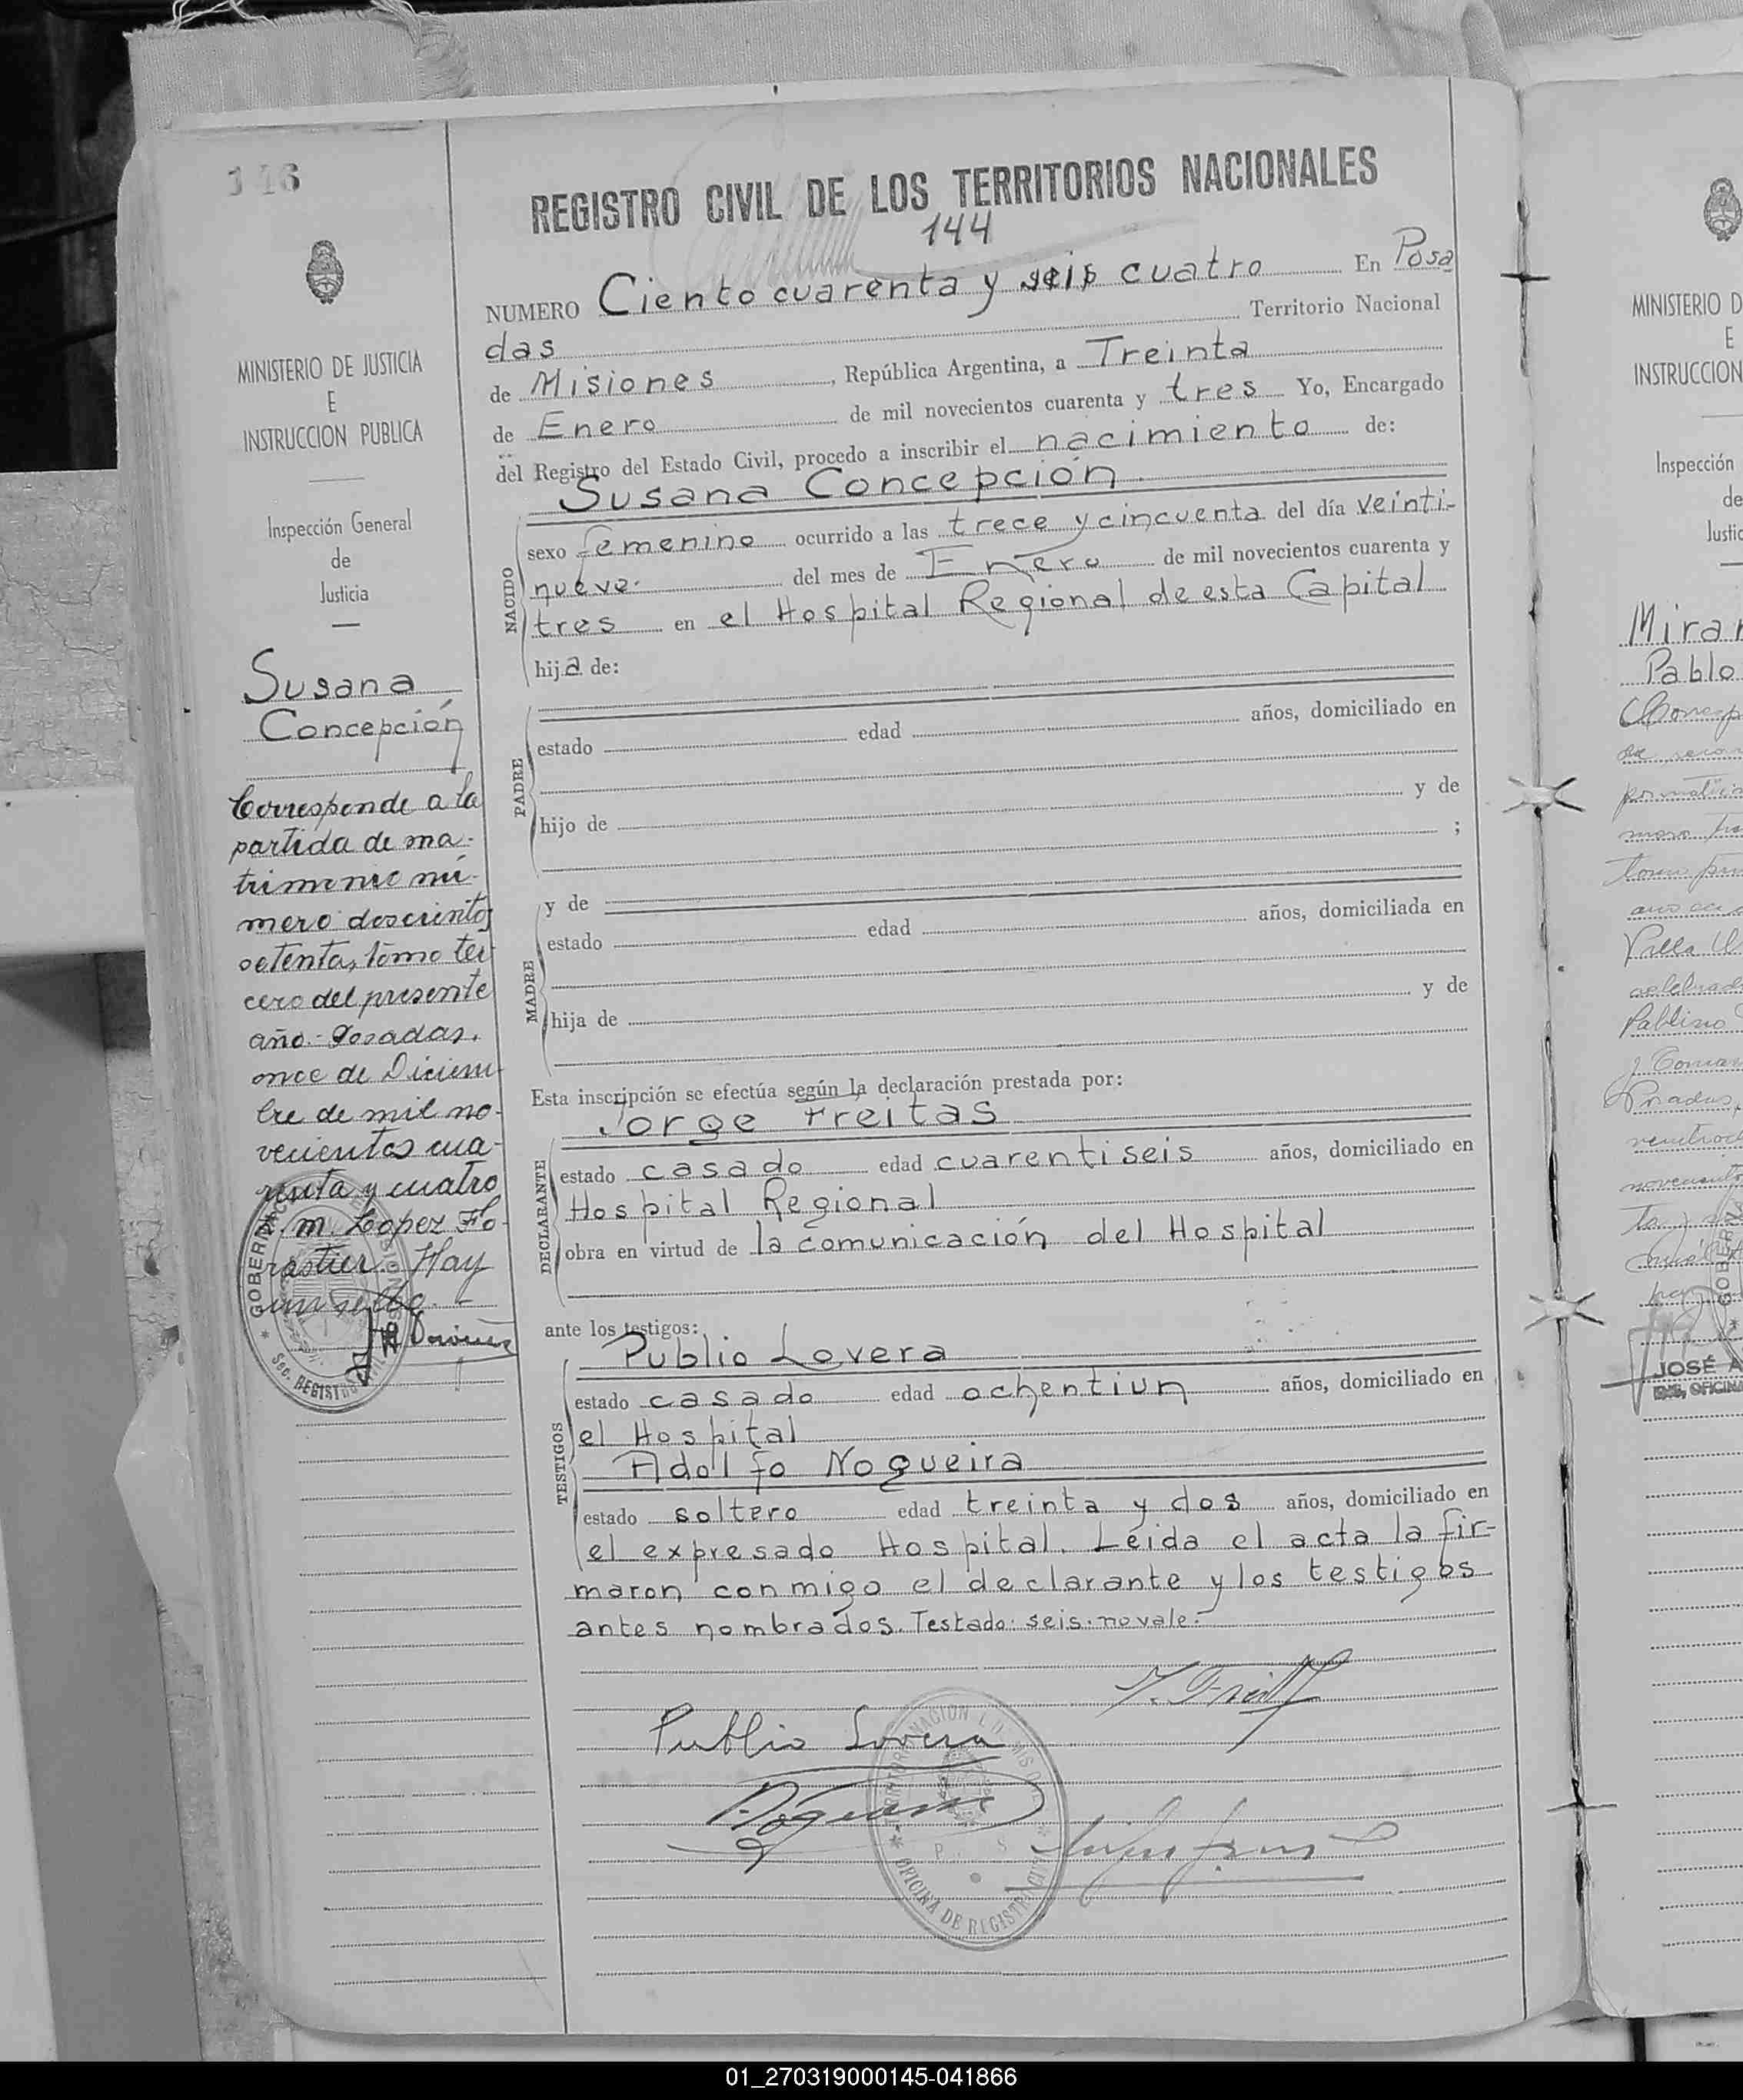 146
MINISTERIO DE JUSTICIA
E
INSTRUCCION PUBLICA
Inspección General
de
Justicia
Susana
Concepción
Corresponde a la
partida de ma-
trimonio nú-
mero doscientos
setenta, tomo ter
cero del presente
año.- Posadas,
once de Diciem-
bre de mil no-
vecientos cua-
renta y cuatro
M. Lopez Fo-
rastier. Hay
un sello.-
REGISTRO CIVIL DE LOS TERRITORIOS NACIONALES
144
NUMERO Ciento cuarenta y seis cuatro En Posa
das Territorio Nacional
de Misiones, República Argentina, a Treinta
de Enero de mil novecientos cuarenta y tres Yo, Encargado
del Registro del Estado Civil, procedo a inscribir el nacimiento de:
Susana Concepción
NACIDO
sexo femenino ocurrido a las trece y cincuenta del día veinti-
nueve del mes de Enero de mil novecientos cuarenta y
tres en el Hospital Regional de esta Capital
hija de:
PADRE
estado edad años, domiciliado en
hijo de y de
;
y de
MADRE
estado edad años, domiciliada en
hija de y de
Esta inscripción se efectúa según la declaración prestada por:
Jorge Freitas
DECLARANTE
estado casado edad cuarentiseis años, domiciliado en
Hospital Regional
obra en virtud de la comunicación del Hospital
ante los testigos:
Publio Lovera
TESTIGOS
estado casado edad ochentiun años, domiciliado en
el Hospital
Adolfo Nogueira
estado soltero edad treinta y dos años, domiciliado en
el expresado Hospital. Leida el acta la fir-
maron conmigo el declarante y los testigos
antes nombrados. Testado: seis: no vale.-
Publio Lovera
OFICINA DE REGISTRO
MINISTERIO D
E
INSTRUCCION
Inspección
de
Justic
Pablo
JOSÉ A
01_270319000145-041866